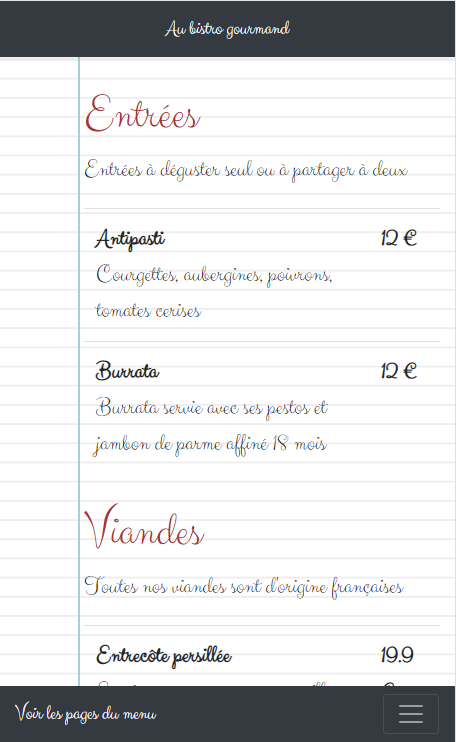 Au bistro gourmand
Entrées
Entrées à déguster seul ou à partager à deux
Antipasti 12 €
Courgettes, aubergines, poivrons,
tomates cerises
Burrata 12 €
Burrata servie avec ses pestos et
jambon de parme affiné 18 mois
Viandes
Toutes nos viandes sont d'origine françaises
Entrecôte persillée 19.9
Voir les pages du menu